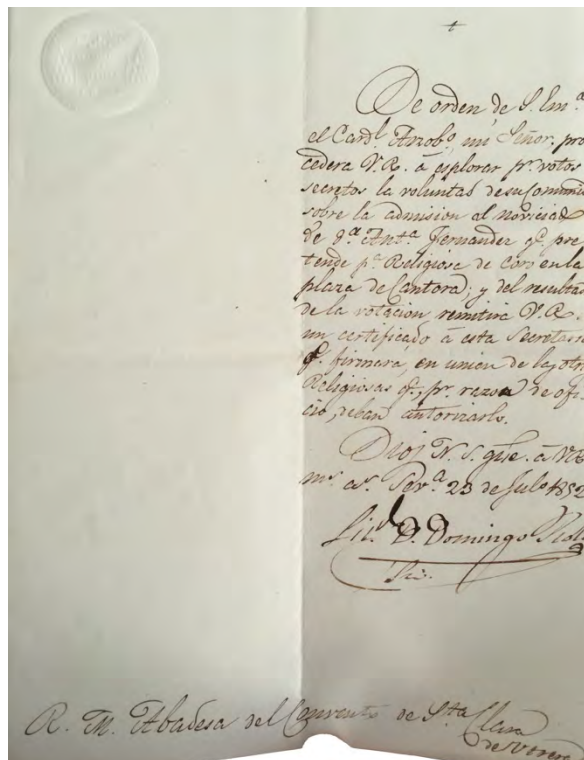 De orden de S. Em.ª
el Card.l Arzob.o mi Señor, pro
cedera V.R. á esplorar p.r votos
secretos la voluntad de su Comunid
sobre la admision al noviciado
de D.ª Ant.ª Fernandez q.e pre
tende p.ª Religiosa de Coro en la
plaza de Cantora; y del resulta
de la votacion, remitirá V.R.
un certificado á esta Secretaria
q.e firmará, en union de las otr
Religiosas q.e, p.r razon de ofi
cio, deban autorizarlo.
Dios N. S. gue. á V.R.
m.s a.s Sev.ª 23 de Jul.o 1852
Lic.do D. Domingo
Srio.
R. M. Abadesa del Convento de S.ta Clara
de